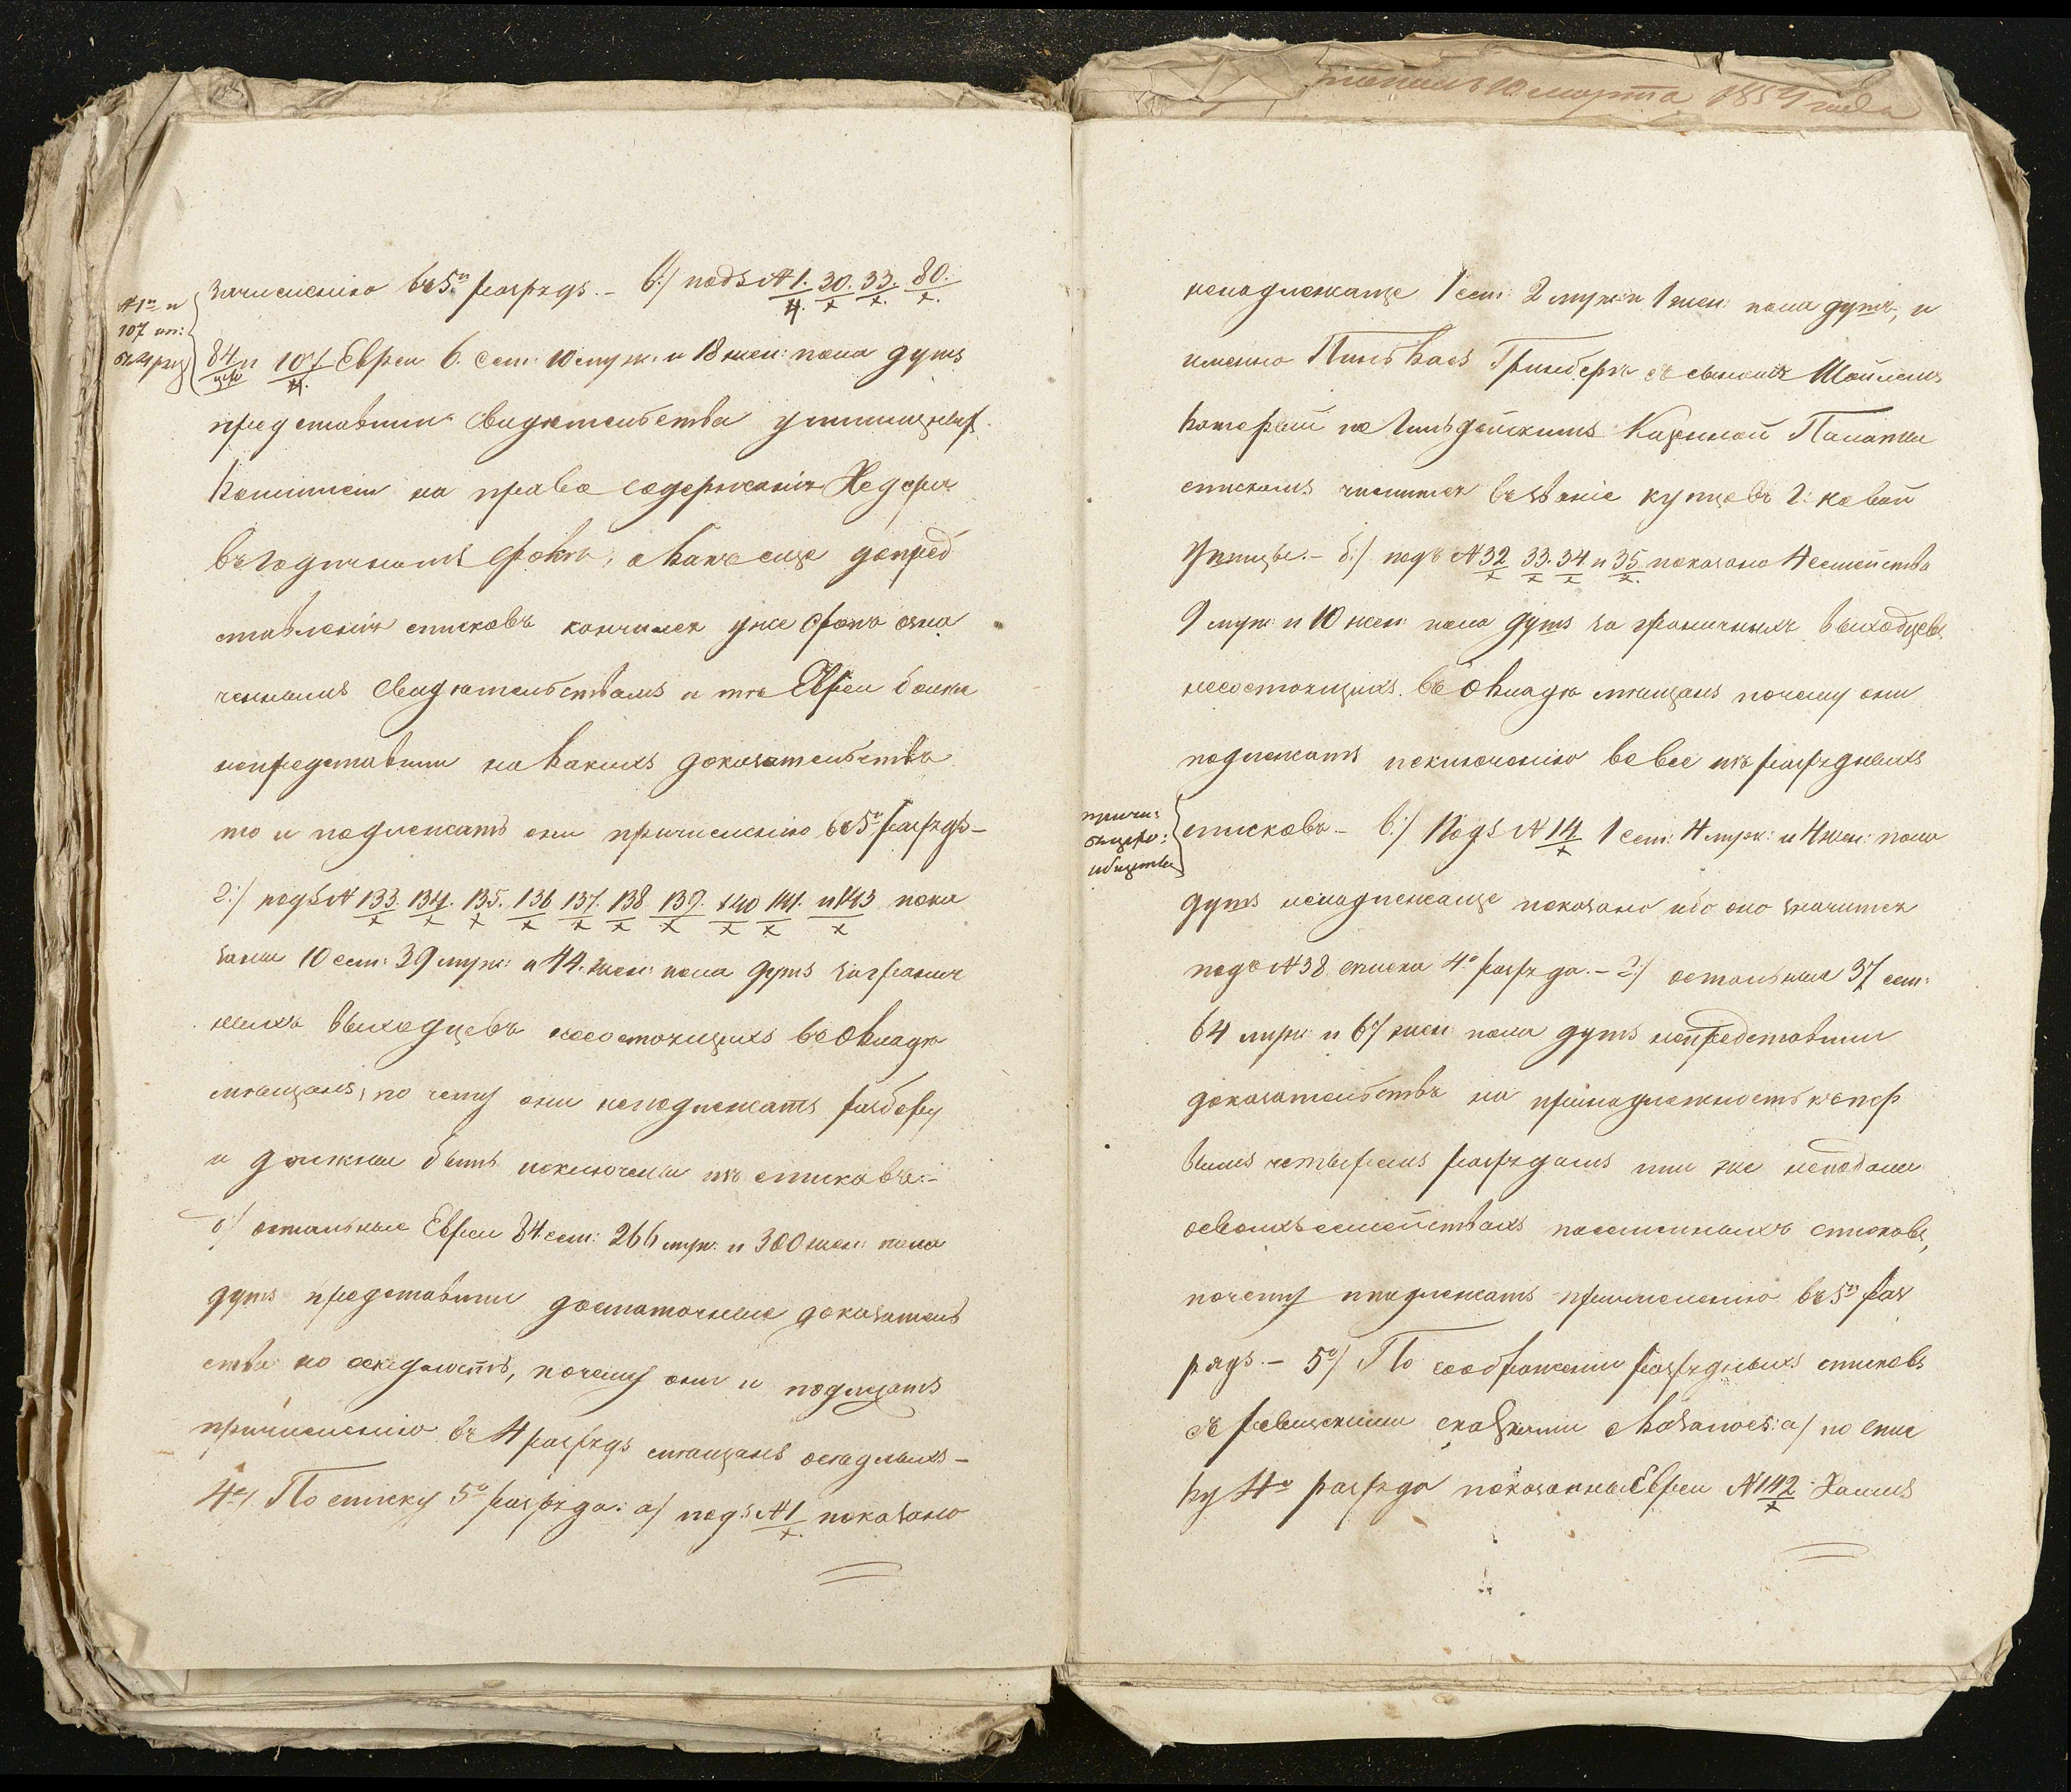 марта 1854 года
зачисленію въ 5й разрядъ. – в:/ подъ № 1. 30. 33. 80.
№ 1й и
107 от:
84 и 107 Евреи 6. Сем: 10 муж: и 18 жен: пола душъ
представили свидѣтельства училищныхъ
на право содержанія Хедера
въ годичномъ срокѣ, а какъ еще до пред
ставленія списковъ кончился уже срокъ озна
ченнымъ свидѣтельствамъ и тѣ Евреи болѣе
непредставили на какихъ доказательствъ
то и подлежатъ они причисленію въ 5й разрядъ –
г:/ подъ № 133. 134. 135. 136 137. 138 139. 140 141. и 143 пока
заны 10 сем: 39 муж: и 44. жен: пола душъ загранич
ныхъ выходцевъ несостоящихъ въ окладѣ
мѣщанъ, по чему они неподлежатъ разбору
и должны быть исключены изъ списковъ. –
д/ остальные Евреи 84 сем: 266 муж: и 300 жен: пола
душъ представили достаточные доказатель
ства на осѣдлость, почему они и подлежатъ
причисленію въ 4 разрядъ мѣщанъ осѣдлыхъ –
4е/. По списку 5го разряда: а/ подъ № 1 показано
ненадлежаще 1 сем: 2 муж: и 1 жен: пола душъ, и
именно Гринбергъ съ сыномъ
который по Гильдейскимъ Казенной Палаты
спискамъ числится въ званіе купцовъ г: Новой
Ушицы. – б:/ подъ № 32 33. 34 и 35 показано 4 семейства
9 муж: и 10 жен: пола душъ за граничныхъ выходцевъ
несостоящихъ въ окладѣ мѣщанъ почему они
подлежатъ исключенію во все изъ разрядныхъ
списковъ – в:/ Подъ № 14 1 сем: 4 муж: и 4 жен: пола
душъ ненадлежаще показано ибо оно значится
подъ № 38 списка 4го разряда. – г:/ остальные 37 сем:
64 муж: и 67 жен: пола душъ непредставили
доказательствъ на принадлежность къ пер
вымъ четыремъ разрядамъ или же неподали
о своихъ семействахъ посемейныхъ списковъ,
почему подлежатъ причисленію въ 5й раз
рядъ. – 5е/ По соображеніи разрядныхъ списковъ
съ ревизскими сказками оказалось: а/ по спис
ку 4го разряда показанные Евреи № 142